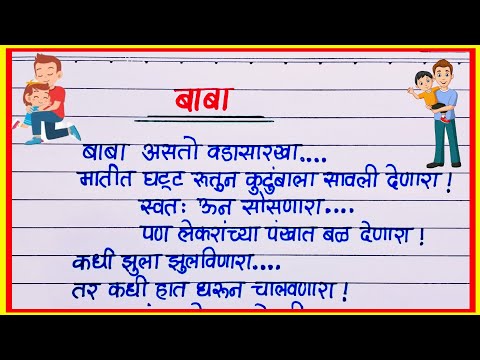 बाबा
बाबा असतो वडासारखा....
मातीत घट्ट रुतुन कुटुंबाला सावली देणारा !
स्वतः ऊन सोसणारा....
पण लेकरांच्या पंखात बळ देणारा !
कधी झुला झुलविणारा....
तर कधी हात धरून चालवणारा !